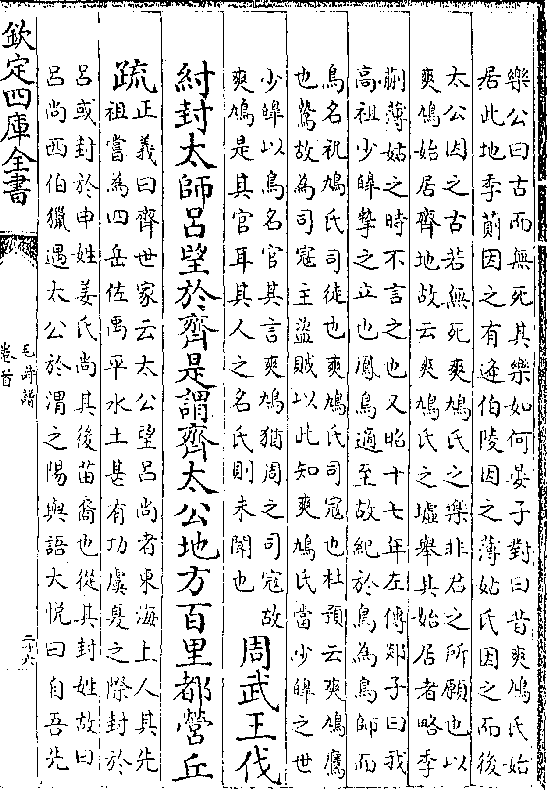 樂公曰古而無死其樂如何晏子對曰昔爽鳩氏始
居此地季萴因之有逄伯陵因之薄姑氏因之而後
太公因之古若無死爽鳩氏之樂非君之所願也以
爽鳩始居齊地故云爽鳩氏之墟舉其始居者略季
萴薄姑之時不言之也又昭十七年左傳郯子曰我
高祖少皥摯之立也鳳鳥適至故紀於鳥為鳥師而
鳥名祝鳩氏司徒也爽鳩氏司寇也杜預云爽鳩鷹
也鷙故為司寇主盜賊以此知爽鳩氏當少皥之世
少皥以鳥名官其言爽鳩猶周之司寇故
爽鳩是其官耳其人之名氏則未聞也
周武王伐
紂封太師呂望於齊是謂齊太公地方百里都營丘
疏
正義曰齊世家云太公望呂尚者東海上人其先
祖嘗為四岳佐禹平水土甚有功虞夏之際封於
呂或封於申姓姜氏尚其後苗裔也從其封姓故曰
呂尚西伯獵遇太公於渭之陽與語大悅曰自吾先
欽定四庫全書
毛詩譜
卷首
二十六